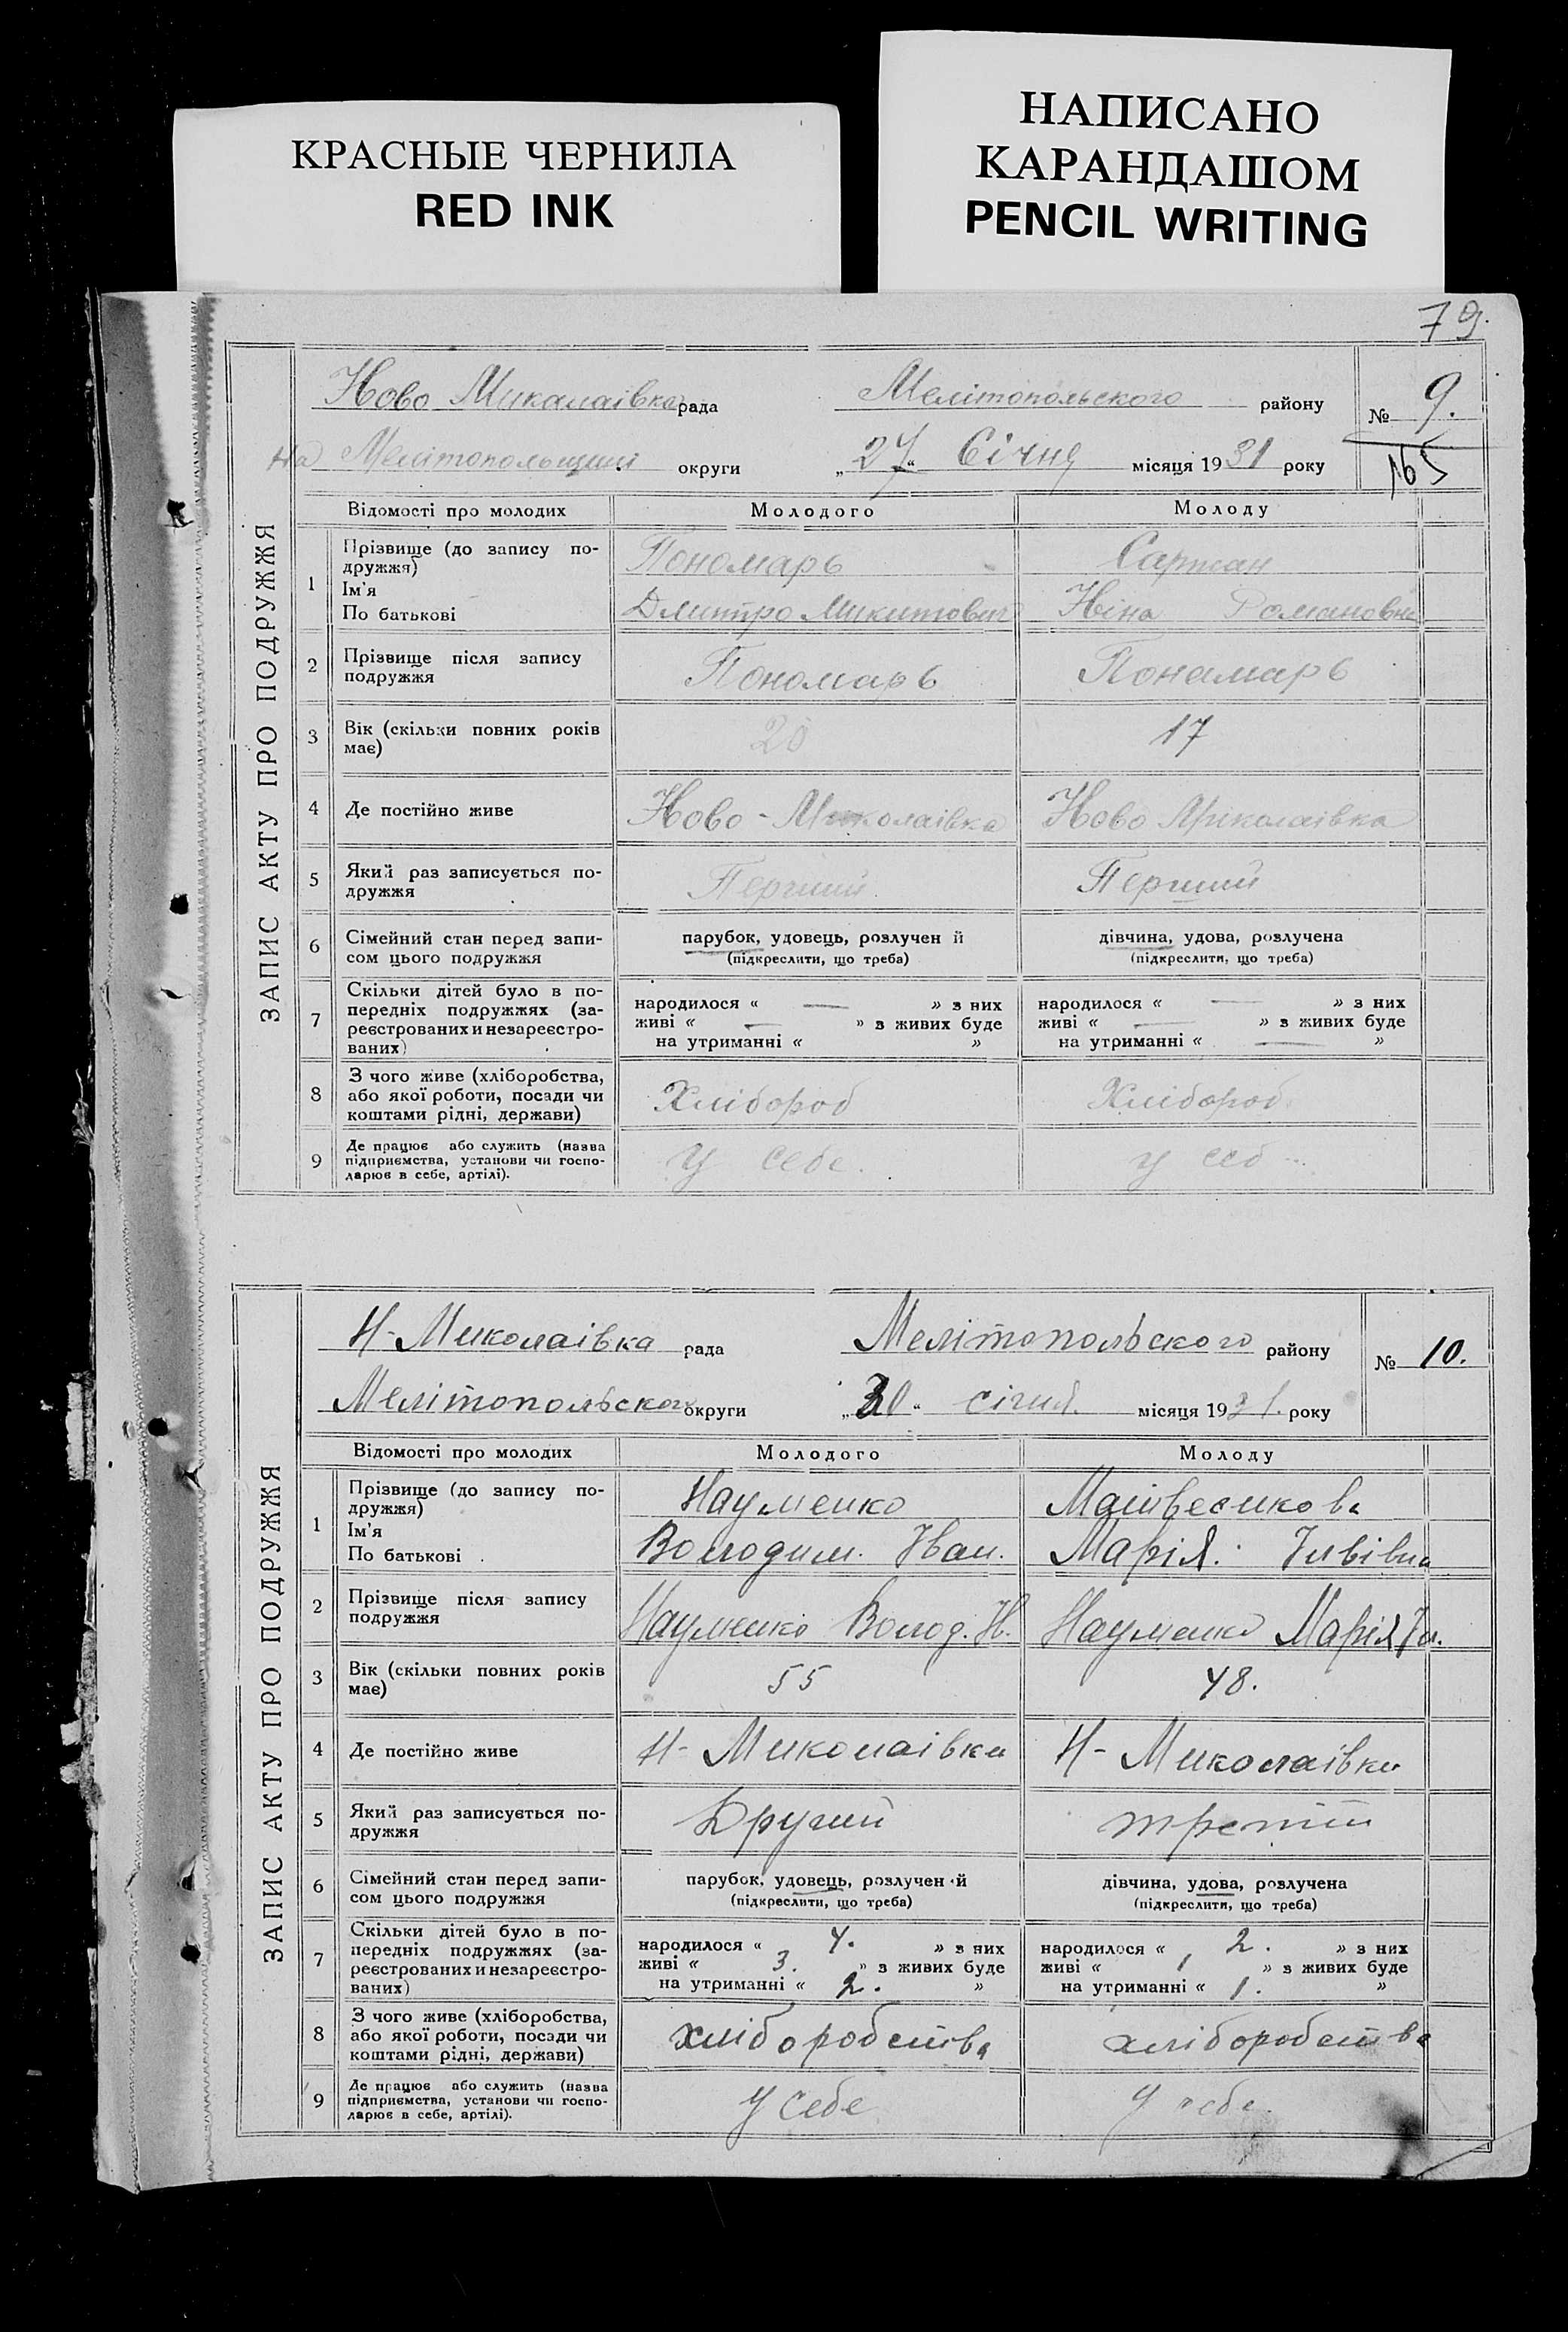 КРАСНЫЕ ЧЕРНИЛА
RED INK
НАПИСАНО
КАРАНДАШОМ
PENCIL WRITING
79.
ЗАПИС АКТУ ПРО ПОДРУЖЖЯ
Ново Миколаівка рада Мелітопольского району № 9.
На Мелітопольщині округи „27“ Січня місяця 1931 року 165
Відомості про молодих Молодого Молоду
1 Прізвище (до запису по-
дружжя) Пономарь Саржан
Ім'я
По батькові Дмитро Микитович Ніна Романовна
2 Прізвище після запису
подружжя Пономарь Пономарь
3 Вік (скільки повних років
має) 20 17
4 Де постійно живе Ново-Миколаівка Ново Миколаівка
5 Який раз записується по-
дружжя Перший Перший
6 Сімейний стан перед запи-
сом цього подружжя парубок, удовець, розлучен й дівчина, удова, розлучена
(підкреслити, що треба) (підкреслити, що треба)
7 Скільки дітей було в по-
передніх подружжях (за-
реєстрованих и незареєстро-
ваних)
народилося « — » з них народилося « — » з них
живі « — » з живих буде живі « — » з живих буде
на утриманні « » на утриманні « — »
8 З чого живе (хліборобства,
або якої роботи, посади чи
коштами рідні, держави) Хлібороб Хлібороб
9 Де працює або служить (назва
підприємства, установи чи госпо-
дарює в себе, артілі). У себе. у себ
ЗАПИС АКТУ ПРО ПОДРУЖЖЯ
Н-Миколаівка рада Мелітопольского району № 10.
Мелітопольского округи „30“ січня. місяця 1931. року
Відомості про молодих Молодого Молоду
1 Прізвище (до запису по-
дружжя) Науменко
Ім'я
По батькові Володим. Іван. Марія.
2 Прізвище після запису
подружжя Науменко Волод. И. Науменко Марія
3 Вік (скільки повних років
має) 55 48.
4 Де постійно живе Н-Миколаівка Н-Миколаівка
5 Який раз записується по-
дружжя Другий третій
6 Сімейний стан перед запи-
сом цього подружжя парубок, удовець, розлучен й дівчина, удова, розлучена
(підкреслити, що треба) (підкреслити, що треба)
7 Скільки дітей було в по-
передніх подружжях (за-
реєстрованих и незареєстро-
ваних)
народилося « 4. » з них народилося « 2. » з них
живі « 3. » з живих буде живі « 1 » з живих буде
на утриманні « 2. » на утриманні « 1. »
8 З чого живе (хліборобства,
або якої роботи, посади чи
коштами рідні, держави) хліборобства хліборобства
9 Де працює або служить (назва
підприємства, установи чи госпо-
дарює в себе, артілі). У себе У себе.